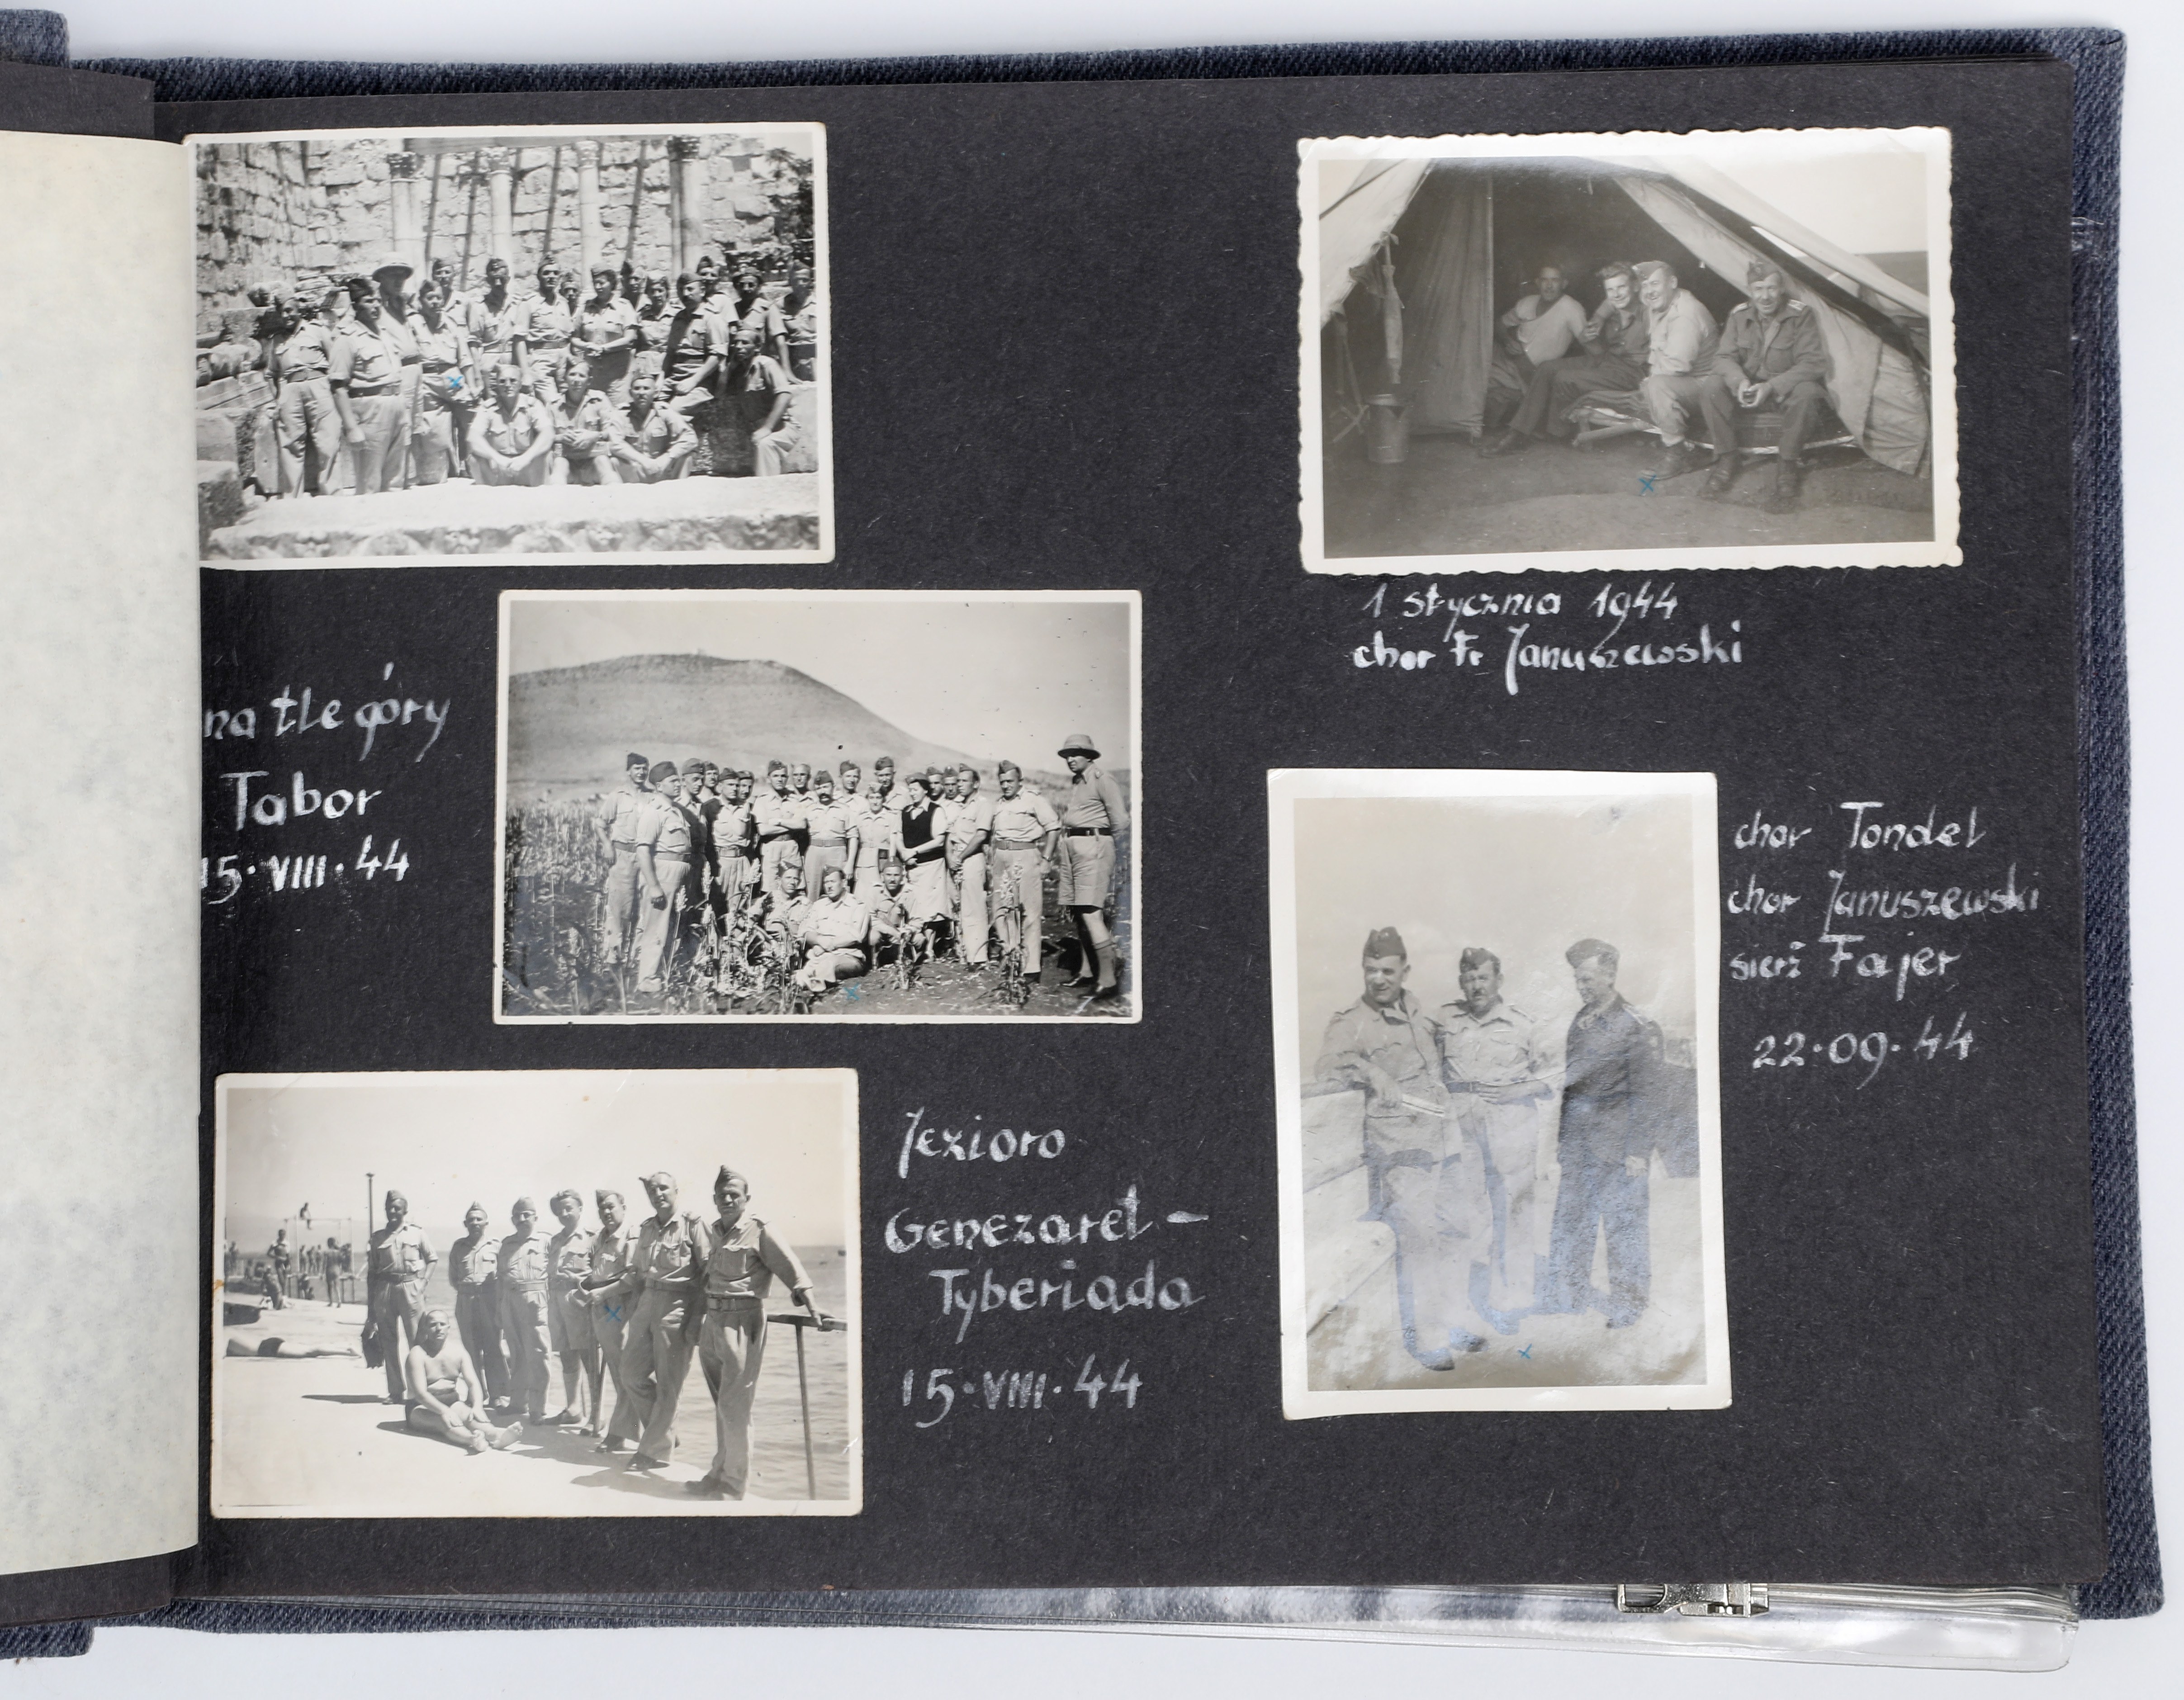 na tle góry
Tabor
15·VIII·44
Jezioro
Genezaret –
Tyberiada
15·VIII·44
1 stycznia 1944
chor Fr Januszewski
chor Tondel
chor Januszewski
sierż Fajer
22·09·44